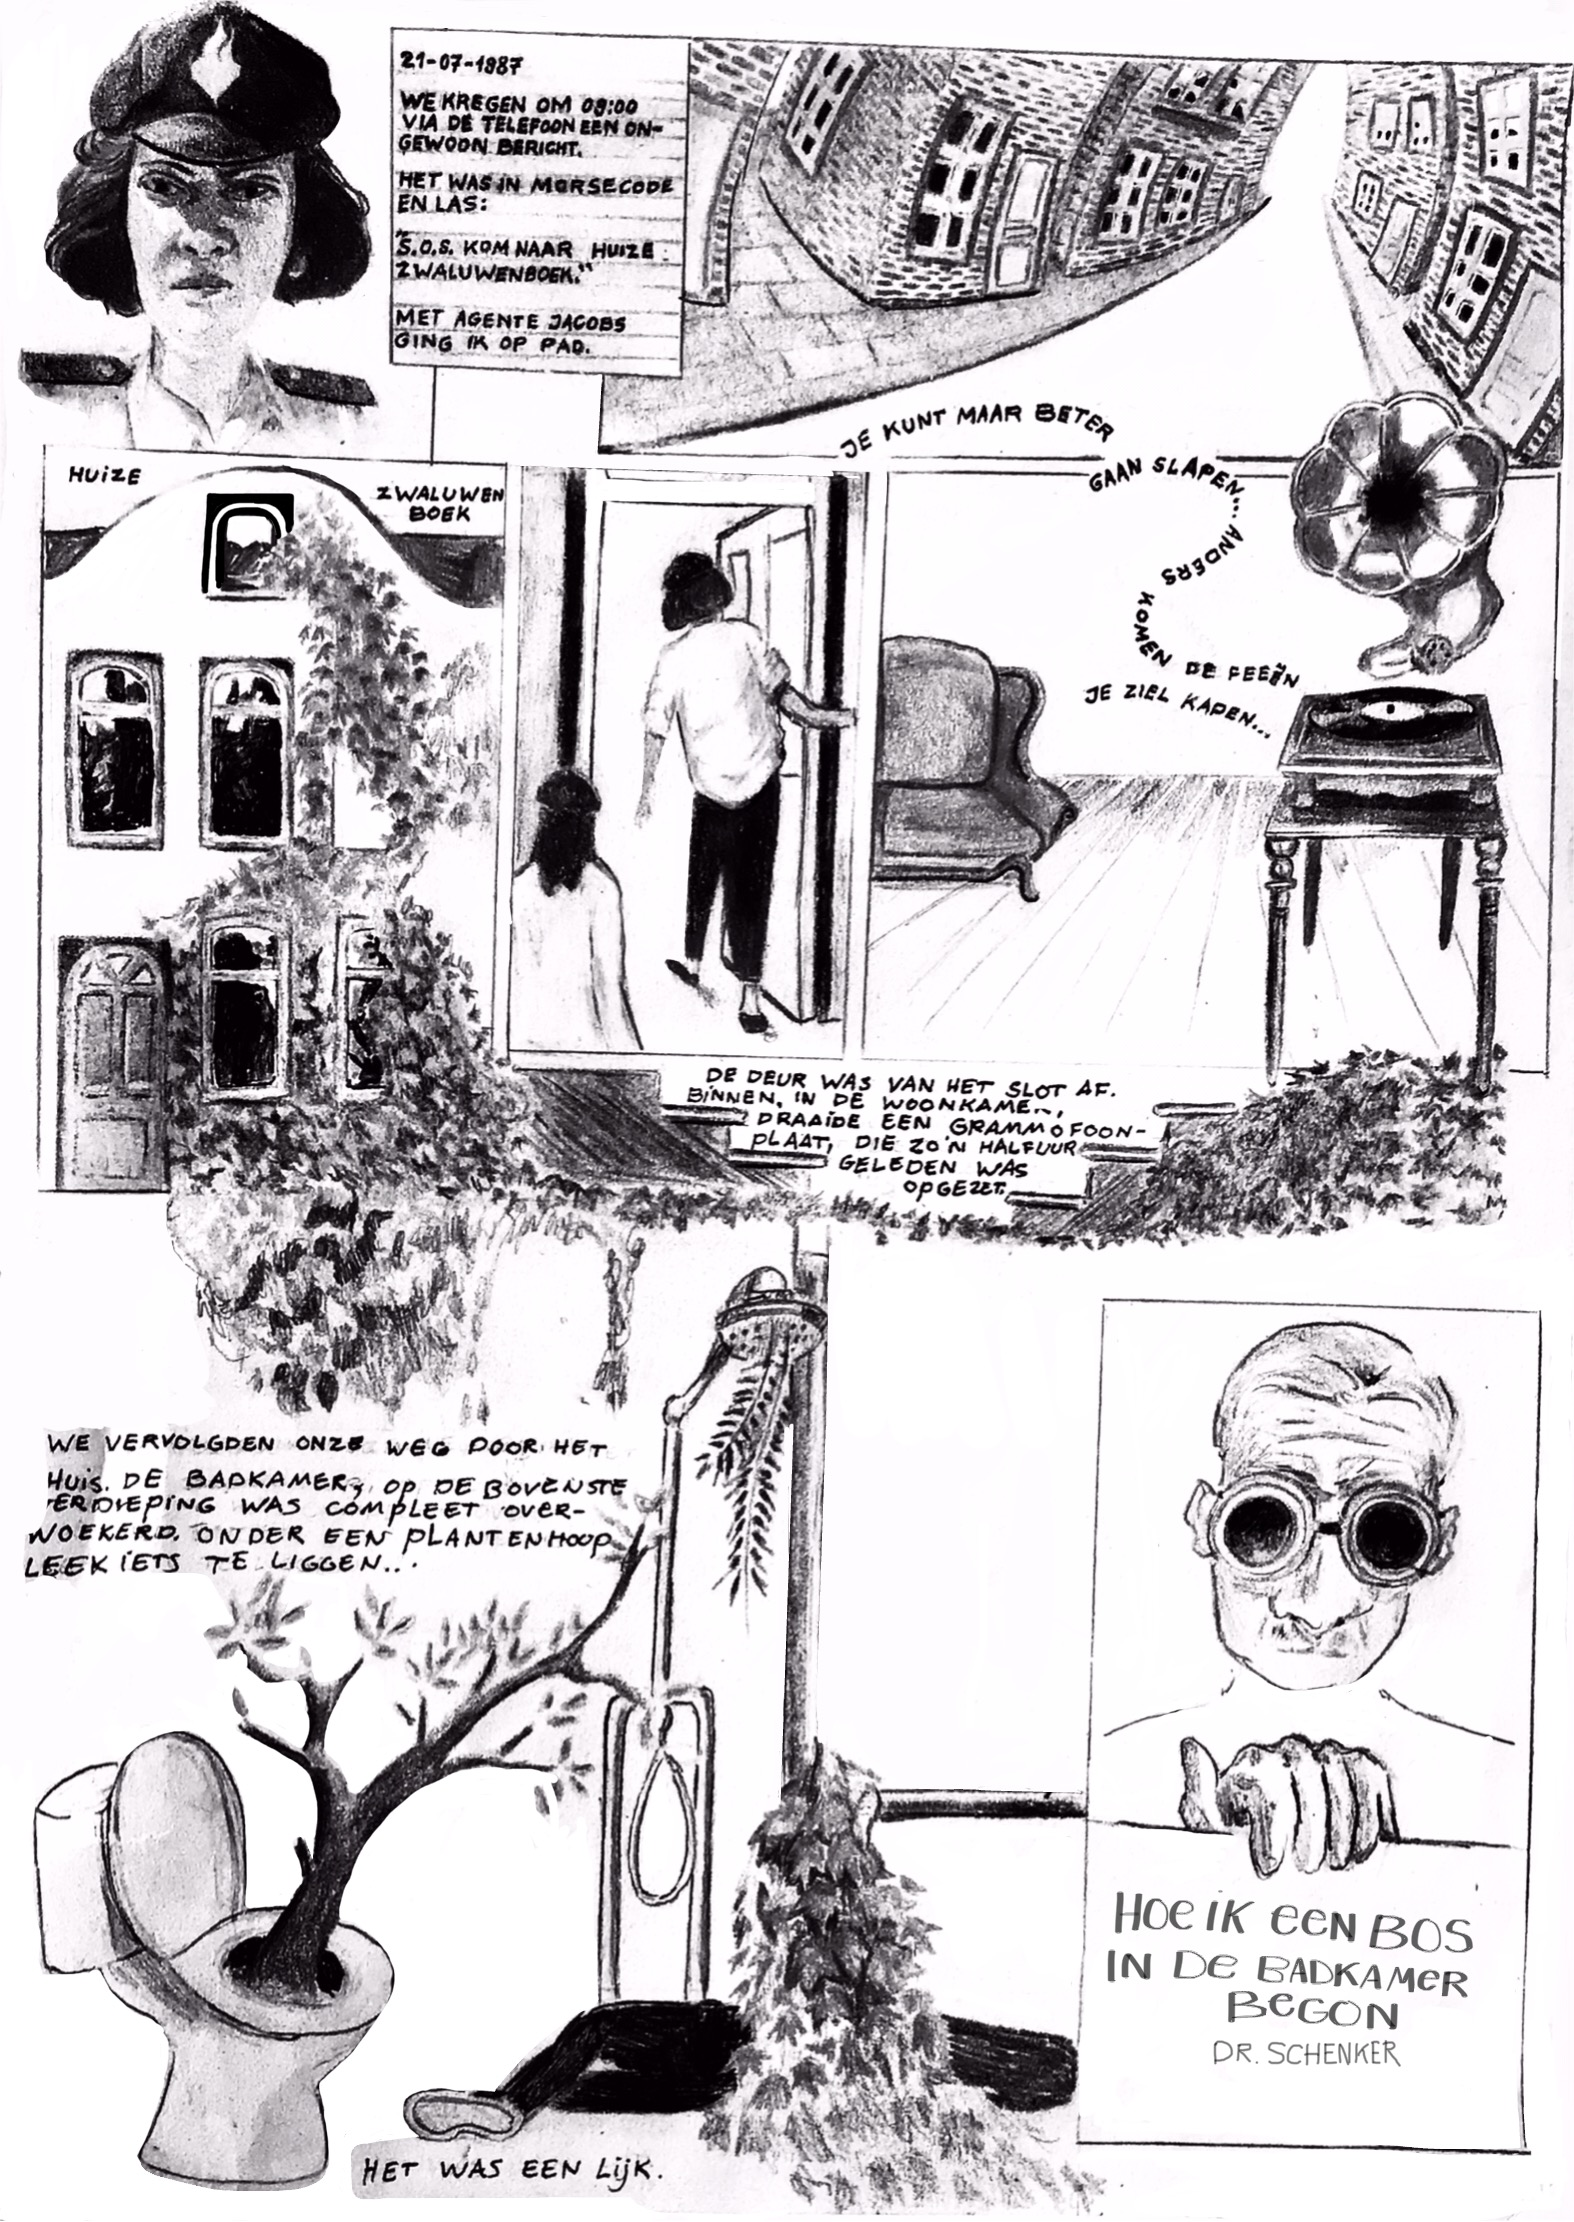 21-07-1987
WE KREGEN OM 09:00
VIA DE TELEFOON EEN ON-
GEWOON BERICHT.
HET WAS IN MORSECODE
EN LAS:
"S.O.S. KOM NAAR HUIZE
ZWALUWENBOEK."
MET AGENTE JACOBS
GING IK OP PAD.
JE KUNT MAAR BETER
GAAN SLAPEN... ANDERS
KOMEN DE FEEËN
JE ZIEL KAPEN...
HUIZE
ZWALUWEN
BOEK
DE DEUR WAS VAN HET SLOT AF.
BINNEN, IN DE WOONKAMER,
DRAAIDE EEN GRAMMOFOON-
PLAAT, DIE ZO'N HALFUUR
GELEDEN WAS
OPGEZET.
WE VERVOLGDEN ONZE WEG DOOR HET
HUIS. DE BADKAMER, OP DE BOVENSTE
VERDIEPING WAS COMPLEET OVER-
WOEKERD. ONDER EEN PLANTENHOOP
LEEK IETS TE LIGGEN...
HET WAS EEN LIJK.
HOE IK EEN BOS
IN DE BADKAMER
BEGON
DR. SCHENKER